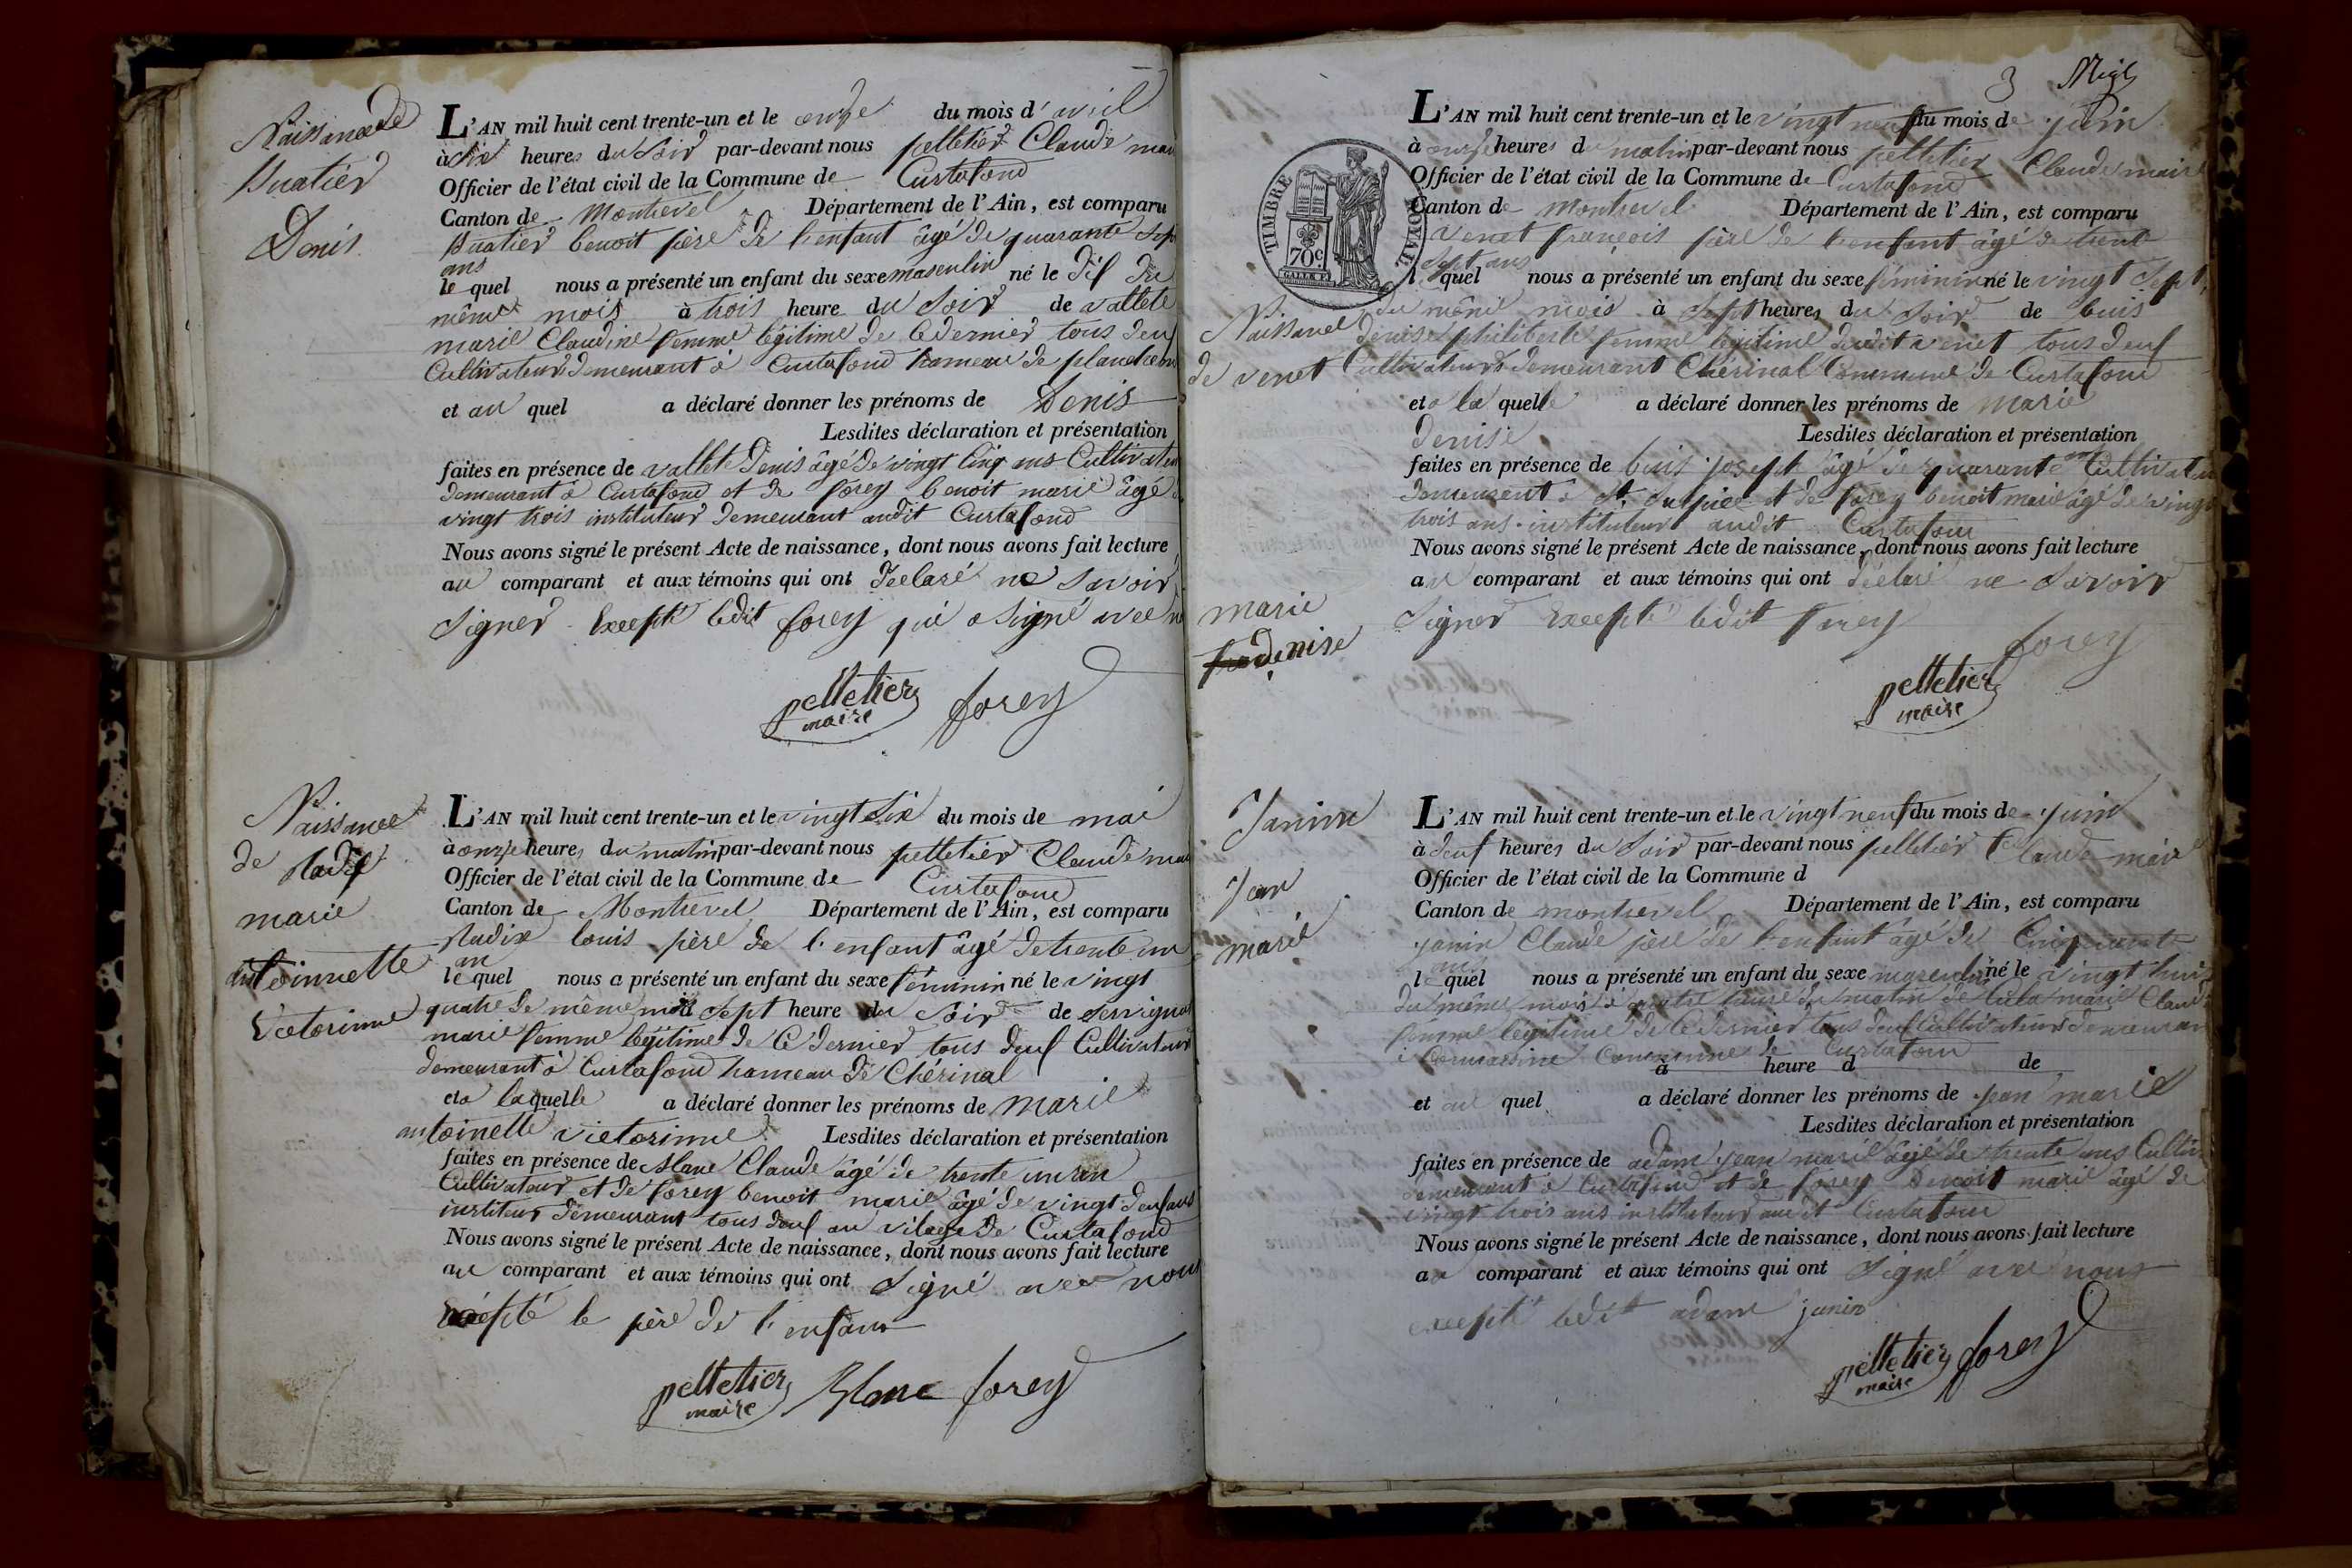 Naissance de
Denis
L'AN mil huit cent trente-un et le onze du mois d'avril
à six heures du soir par-devant nous pelletier Claude
Officier de l'état civil de la Commune de Curtafond
Canton de Montrevel Département de l'Ain, est comparu
benoit père de l'enfant âgé de quarante
ans
le quel nous a présenté un enfant du sexe masculin né le dix du
même mois à trois heure du soir de vallete
marie Claudine femme légitime de ce dernier tous deux
Cultivateurs demeurant à Curtafond hameau de
et au quel a déclaré donner les prénoms de Denis
Lesdites déclaration et présentation
faites en présence de vallete Denis âgé de vingt cinq ans
demeurant à Curtafond et de forey benoit marie âgé
vingt trois instituteur demeurant audit Curtafond
Nous avons signé le présent Acte de naissance, dont nous avons fait lecture
au comparant et aux témoins qui ont déclaré ne savoir
signer excepté ledit forey qui a signé avec
pelletier maire forey
Naissance
de
marie
antoinette
victorinne
L'AN mil huit cent trente-un et le vingt six du mois de mai
à onze heures du matin par-devant nous pelletier Claude
Officier de l'état civil de la Commune de Curtafond
Canton de Montrevel Département de l'Ain, est comparu
louis père de l'enfant âgé de trente un
an
le quel nous a présenté un enfant du sexe féminin né le vingt
quatre de même mois sept heure du soir de
marie femme légitime de ce dernier tous deux Cultivateurs
demeurant à Curtafond hameau de Chérinal
et a laquelle a déclaré donner les prénoms de marie
antoinette victorinne Lesdites déclaration et présentation
faites en présence de Blanc Claude âgé de trente un an
Cultivateur et de forey benoit marie âgé de vingt deux ans
demeurant tous deux au vilage de Curtafond
Nous avons signé le présent Acte de naissance, dont nous avons fait lecture
au comparant et aux témoins qui ont signé avec nous
excepté le père de l'enfant
pelletier maire Blanc forey
3
TIMBRE ROYAL
70 c.
Naissance
de venet
marie
denise
L'AN mil huit cent trente-un et le vingt neuf du mois de juin
à onze heures du matin par-devant nous pelletier Claude maire
Officier de l'état civil de la Commune de Curtafond
Canton de Montrevel Département de l'Ain, est comparu
venet françois père de l'enfant âgé de trente
sept ans
l quel nous a présenté un enfant du sexe féminin né le vingt sept
du même mois à sept heures du soir de buis
denise philiberte femme légitime dudit venet tous deux
Cultivateurs demeurant Chérinal Commune de Curtafond
et a la quelle a déclaré donner les prénoms de marie
denise Lesdites déclaration et présentation
faites en présence de buis joseph âgé de quarante ans
demeurent à St Sulpice et de forey benoit marie âgé de vingt
trois ans instituteur audit Curtafond
Nous avons signé le présent Acte de naissance, dont nous avons fait lecture
au comparant et aux témoins qui ont déclaré ne savoir
signer excepté ledit forey
pelletier maire forey
Janin
Jean
marie
L'AN mil huit cent trente-un et le vingt neuf du mois de juin
à deux heures du soir par-devant nous pelletier Claude maire
Officier de l'état civil de la Commune d
Canton de montrevel Département de l'Ain, est comparu
janin Claude père de l'enfant âgé de Cinquante
l quel nous a présenté un enfant du sexe masculin né le vingt huit
du même mois à quatre heure du matin de marie
femme légitime de ce dernier tous deux Cultivateurs
Commune de Curtafond
à heure d de
et au quel a déclaré donner les prénoms de jean marie
Lesdites déclaration et présentation
faites en présence de adam jean marie âgé de trente ans
demeurant à Curtafond et de forey Benoit marie âgé de
vingt trois ans instituteur audit Curtafond
Nous avons signé le présent Acte de naissance, dont nous avons fait lecture
au comparant et aux témoins qui ont signé avec nous
excepté ledit adam janin
pelletier maire forey